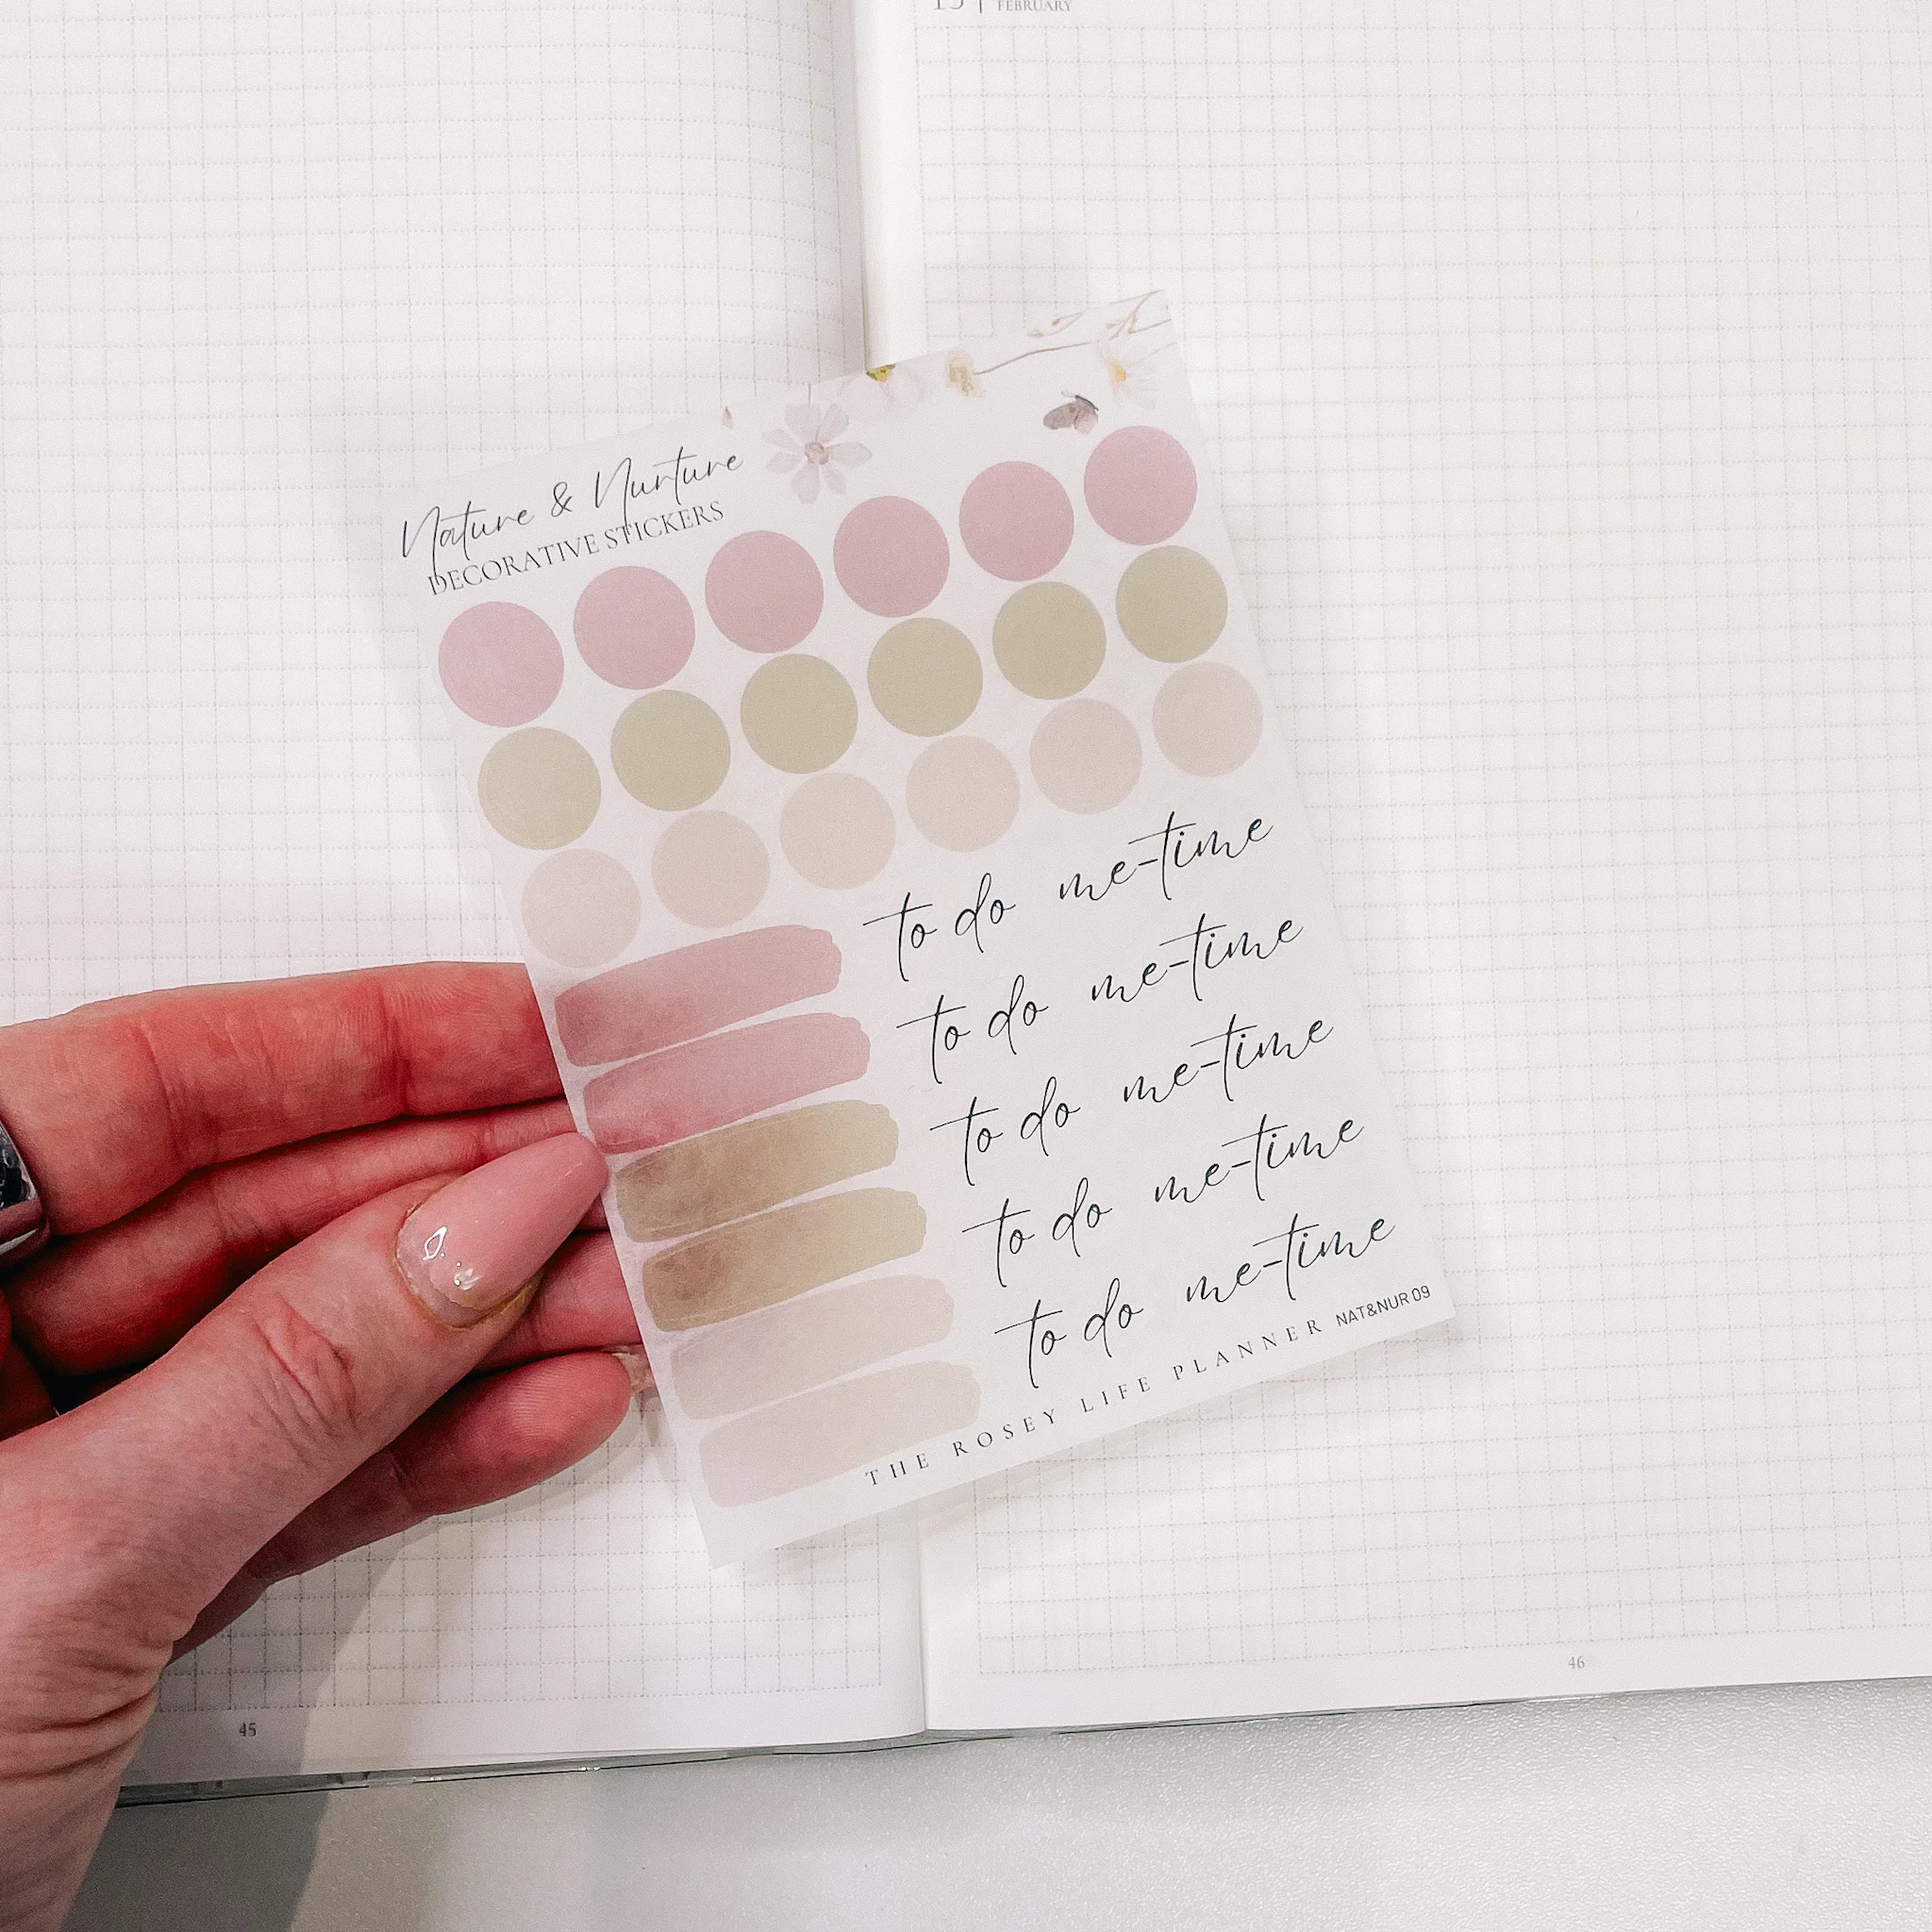 FEBRUARY
Nature & Nurture
DECORATIVE STICKERS
to do me-time
to do me-time
to do me-time
to do me-time
to do me-time
THE ROSEY LIFE PLANNER NAT&NUR 09
45
46